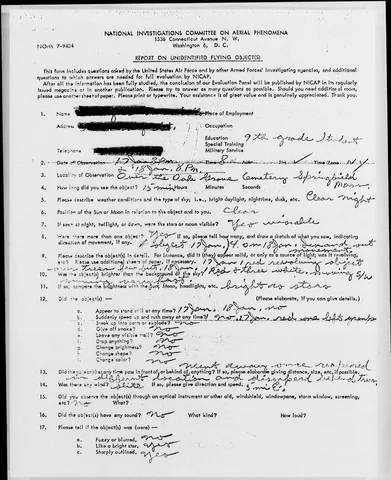 NATIONAL INVESTIGATIONS COMMITTEE ON AERIAL PHENOMENA
1536 Connecticut Avenue N. W.
NOrth 7-9434
Washington 6, D. C.
REPORT ON UNIDENTIFIED FLYING OBJECT(S)
This form includes questions asked by the United States Air Force and by other Armed Forces' investigating agencies, and additional
questions to which answers are needed for full evaluation by NICAP.
After all the information has been fully studied, the conclusion of our Evaluation Panel will be published by NICAP in its regularly
issued magazine or in another publication. Please try to answer as many questions as possible. Should you need additional room,
please use another sheet of paper. Please print or typewrite. Your assistance is of great value and is genuinely appreciated. Thank you.
1. Name
Place of Employment
Address
Occupation
Education 9th grade student
Special Training
Military Service
Telephone
2. Date of Observation 17 Jan 8 PM
Time Zone N.Y.
18 Jan. 8 PM
3. Locality of Observation Over the Oak Grove Cemetery Springfield
Mass.
4. How long did you see the object? 15 min Hours Minutes Seconds
5. Please describe weather conditions and the type of sky; i.e., bright daylight, nighttime, dusk, etc. Clear night
6. Position of the Sun or Moon in relation to the object and to you. Clear
7. If seen at night, twilight, or dawn, were the stars or moon visible? Yes visible
8. Were there more than one object? Yes If so, please tell how many, and draw a sketch of what you saw, indicating
direction of movement, if any.
9. Please describe the object(s) in detail. For instance, did it (they) appear solid, or only as a source of light; was it revolving,
etc.? Please use additional sheets of paper, if necessary.
10. Was the object(s) brighter than the background of the sky?
11. If so, compare the brightness with the Sun, Moon, headlights, etc. bright as stars
12. Did the object(s) — (Please elaborate, if you can give details.)
a. Appear to stand still at any time? 17 Jan, 18 Jan. no
b. Suddenly speed up and rush away at any time? no, 17 Jan. red one left group
c. Break up into parts or explode? no
d. Give off smoke? no
e. Leave any visible trail? no
f. Drop anything? no
g. Change brightness? no
h. Change shape? no
i. Change color? no
13. Did the object(s) at any time pass in front of, or behind of, anything? If so, please elaborate giving distance, size, etc, if possible.
14. Was there any wind? If so, please give direction and speed. 5 mi.
15. Did you observe the object(s) through an optical instrument or other aid, windshield, windowpane, storm window, screening,
etc.? No What?
16. Did the object(s) have any sound? no What kind? How loud?
17. Please tell if the object(s) was (were) —
a. Fuzzy or blurred. no
b. Like a bright star. yes
c. Sharply outlined. yes